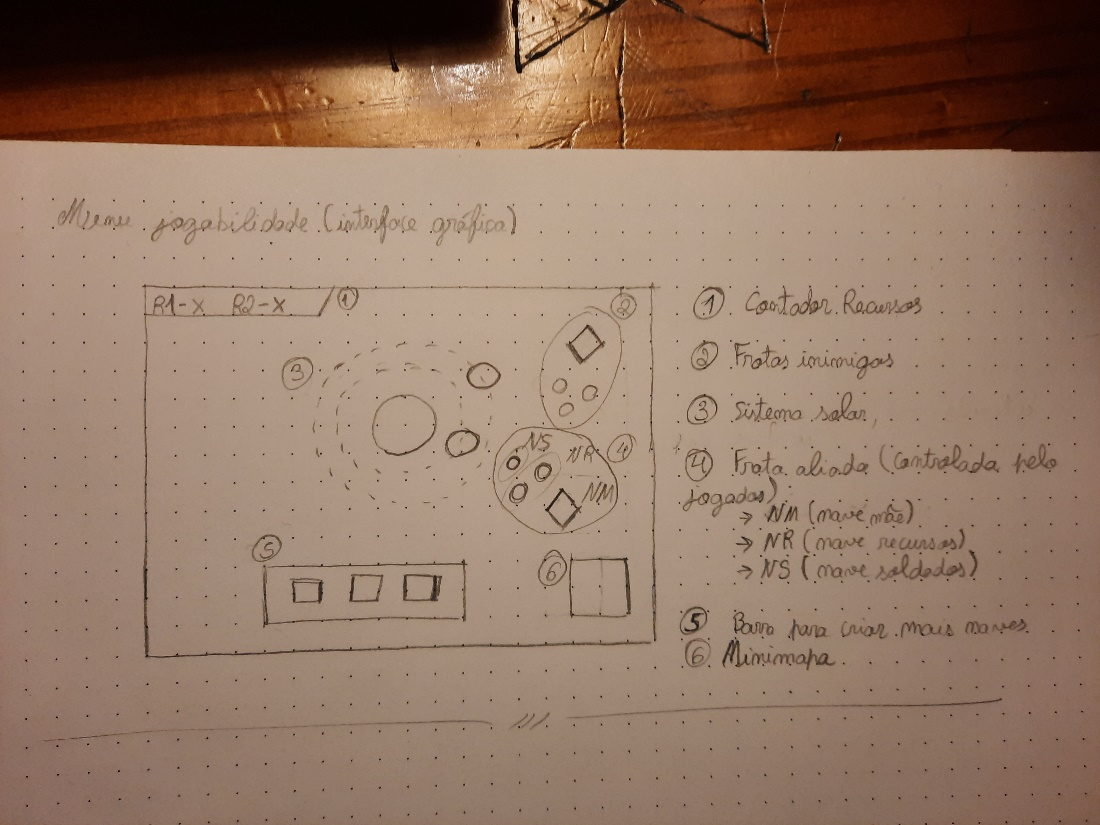 Menu jogabilidade (interface gráfica)
R1-X R2-X
1
2
3
NS
NR
4
NM
5
6
1 Contador Recursos
2 Frotas inimigas
3 Sistema solar
4 Frota aliada (controlada pelo
jogador)
→ NM (nave mãe)
→ NR (nave recursos)
→ NS (nave soldados)
5 Barra para criar mais naves
6 Minimapa